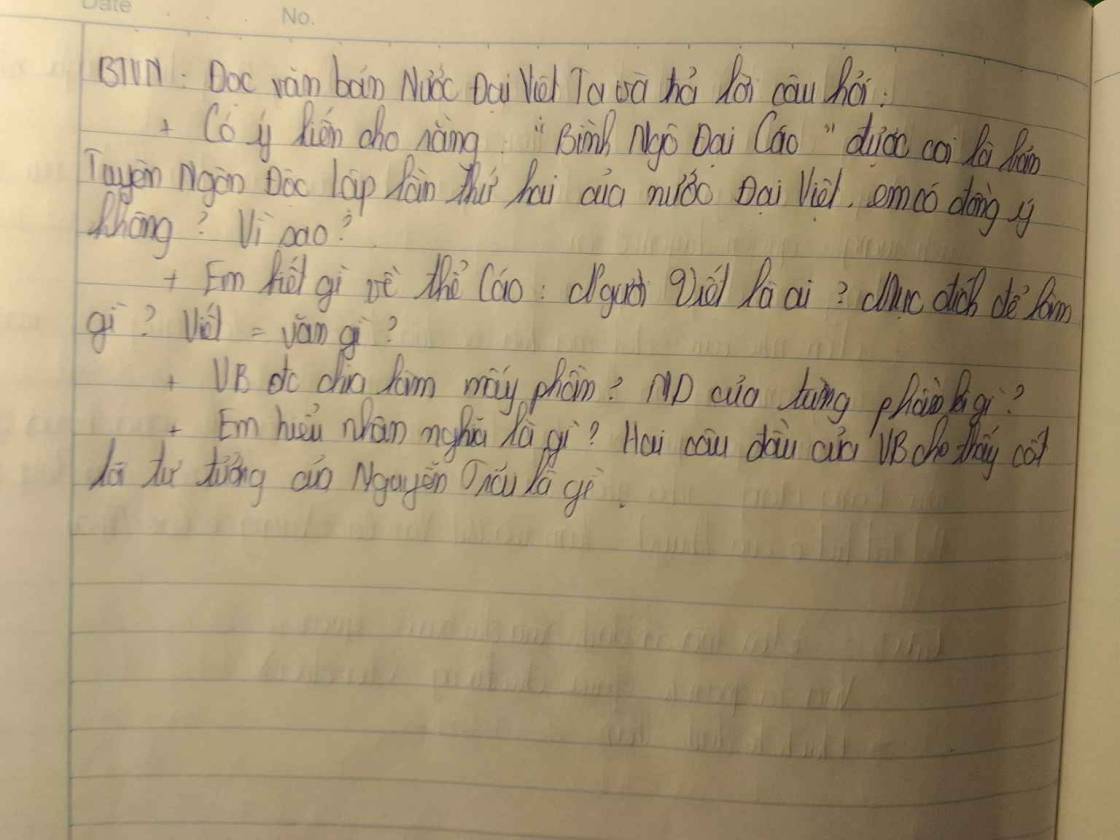 Date No.
BTVN: Đọc văn bản Nước Đại Việt Ta và trả lời câu hỏi:
+ Có ý kiến cho rằng: "Bình Ngô Đại Cáo" được coi là bản
Tuyên Ngôn Độc lập lần thứ hai của nước Đại Việt. em có đồng ý
không? Vì sao?
+ Em biết gì về thể Cáo: Người Viết là ai? Mục đích để làm
gì? Viết = văn gì?
+ VB đc chia làm mấy phần? ND của từng phần là gì?
+ Em hiểu nhân nghĩa là gì? Hai câu đầu của VB cho thấy cốt
lõi tư tưởng của Nguyễn Trãi là gì.